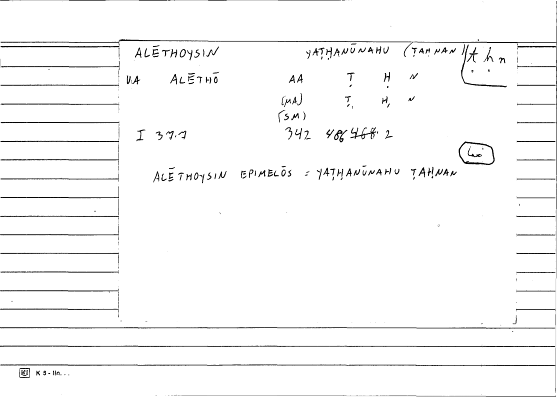 ALĒTHOYSIN YAṬḤANŪNAHU (ṬAḤNAN) ṭ ḥ n
V.A ALĒTHŌ AA Ṭ Ḥ N
(MA) Ṭ Ḥ N
(SM)
I 37.7 342 2
ALĒTHOYSIN EPIMELŌS = YAṬḤANŪNAHU ṬAḤNAN
K 5 -